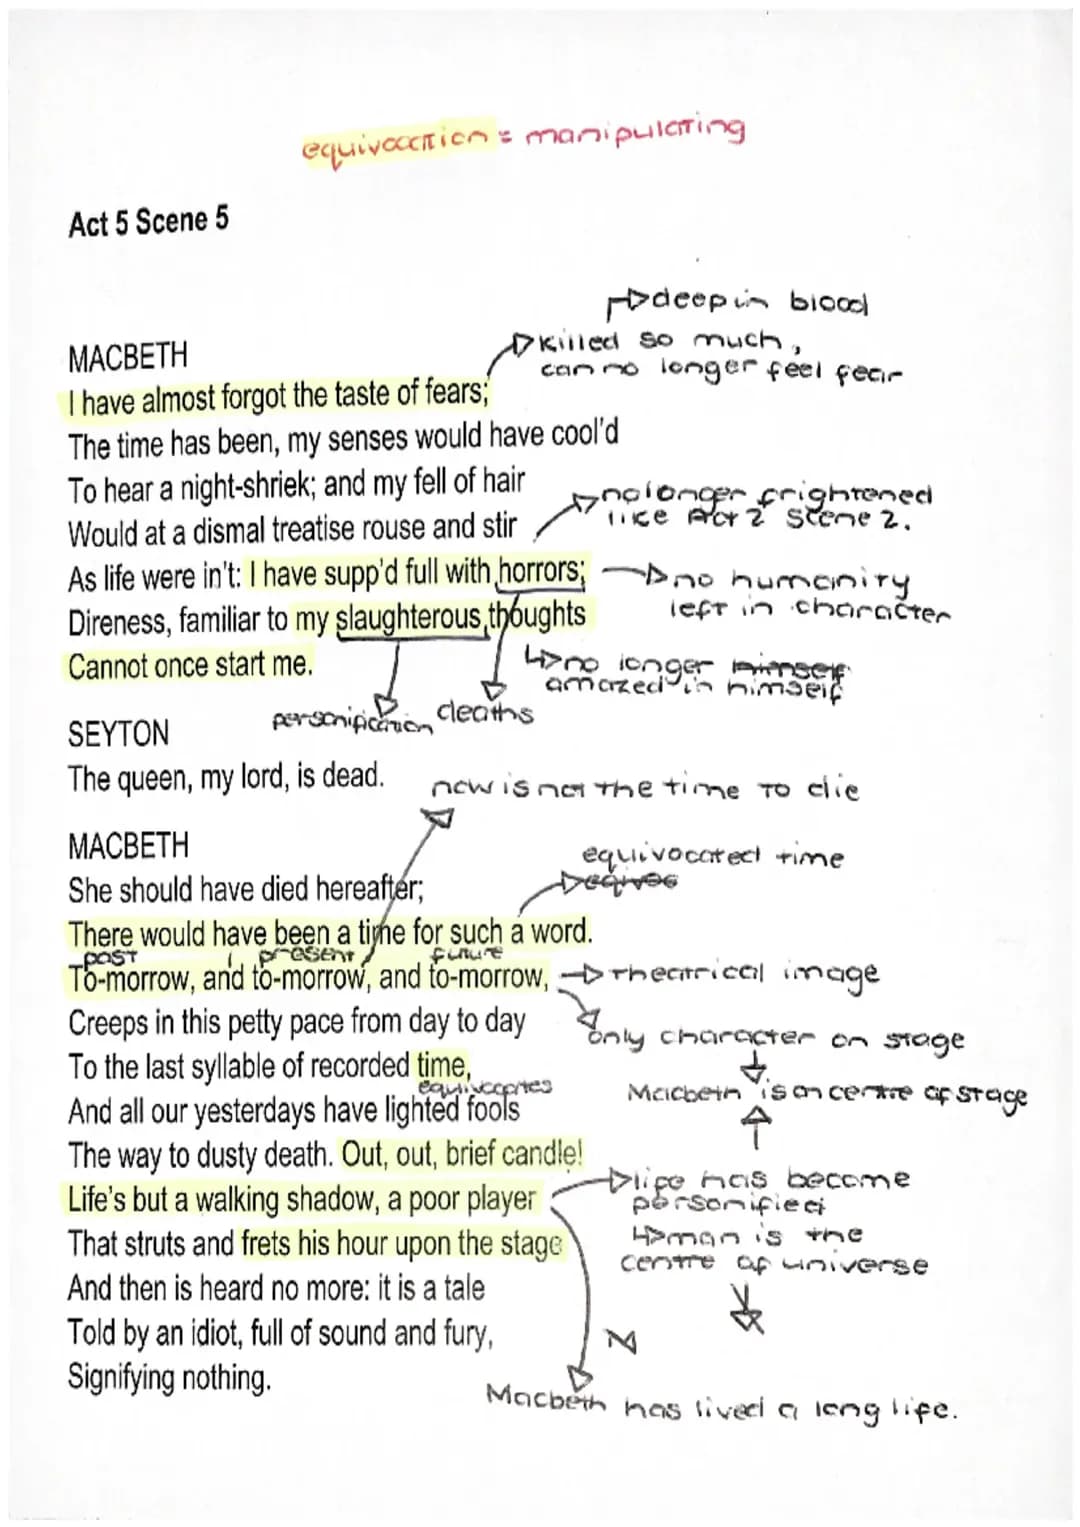 equivocation = manipulating
Act 5 Scene 5
deep in blood
MACBETH
killed so much,
can no longer feel fear
I have almost forgot the taste of fears;
The time has been, my senses would have cool'd
To hear a night-shriek; and my fell of hair
no longer frightened
like Act 2 Scene 2.
Would at a dismal treatise rouse and stir
As life were in't: I have supp'd full with horrors;
no humanity
left in character
Direness, familiar to my slaughterous thoughts
Cannot once start me.
no longer himself
amazed in himself
personification
deaths
SEYTON
The queen, my lord, is dead.
now is not the time to die
MACBETH
equivocated time
She should have died hereafter;
equivoc
There would have been a time for such a word.
past present future
To-morrow, and to-morrow, and to-morrow,
theatrical image
Creeps in this petty pace from day to day
only character on stage
To the last syllable of recorded time,
equivocates
Macbeth is on centre of stage
And all our yesterdays have lighted fools
The way to dusty death. Out, out, brief candle!
life has become
personified
Life's but a walking shadow, a poor player
man is the
centre of universe
That struts and frets his hour upon the stage
And then is heard no more: it is a tale
Told by an idiot, full of sound and fury,
Signifying nothing.
Macbeth has lived a long life.